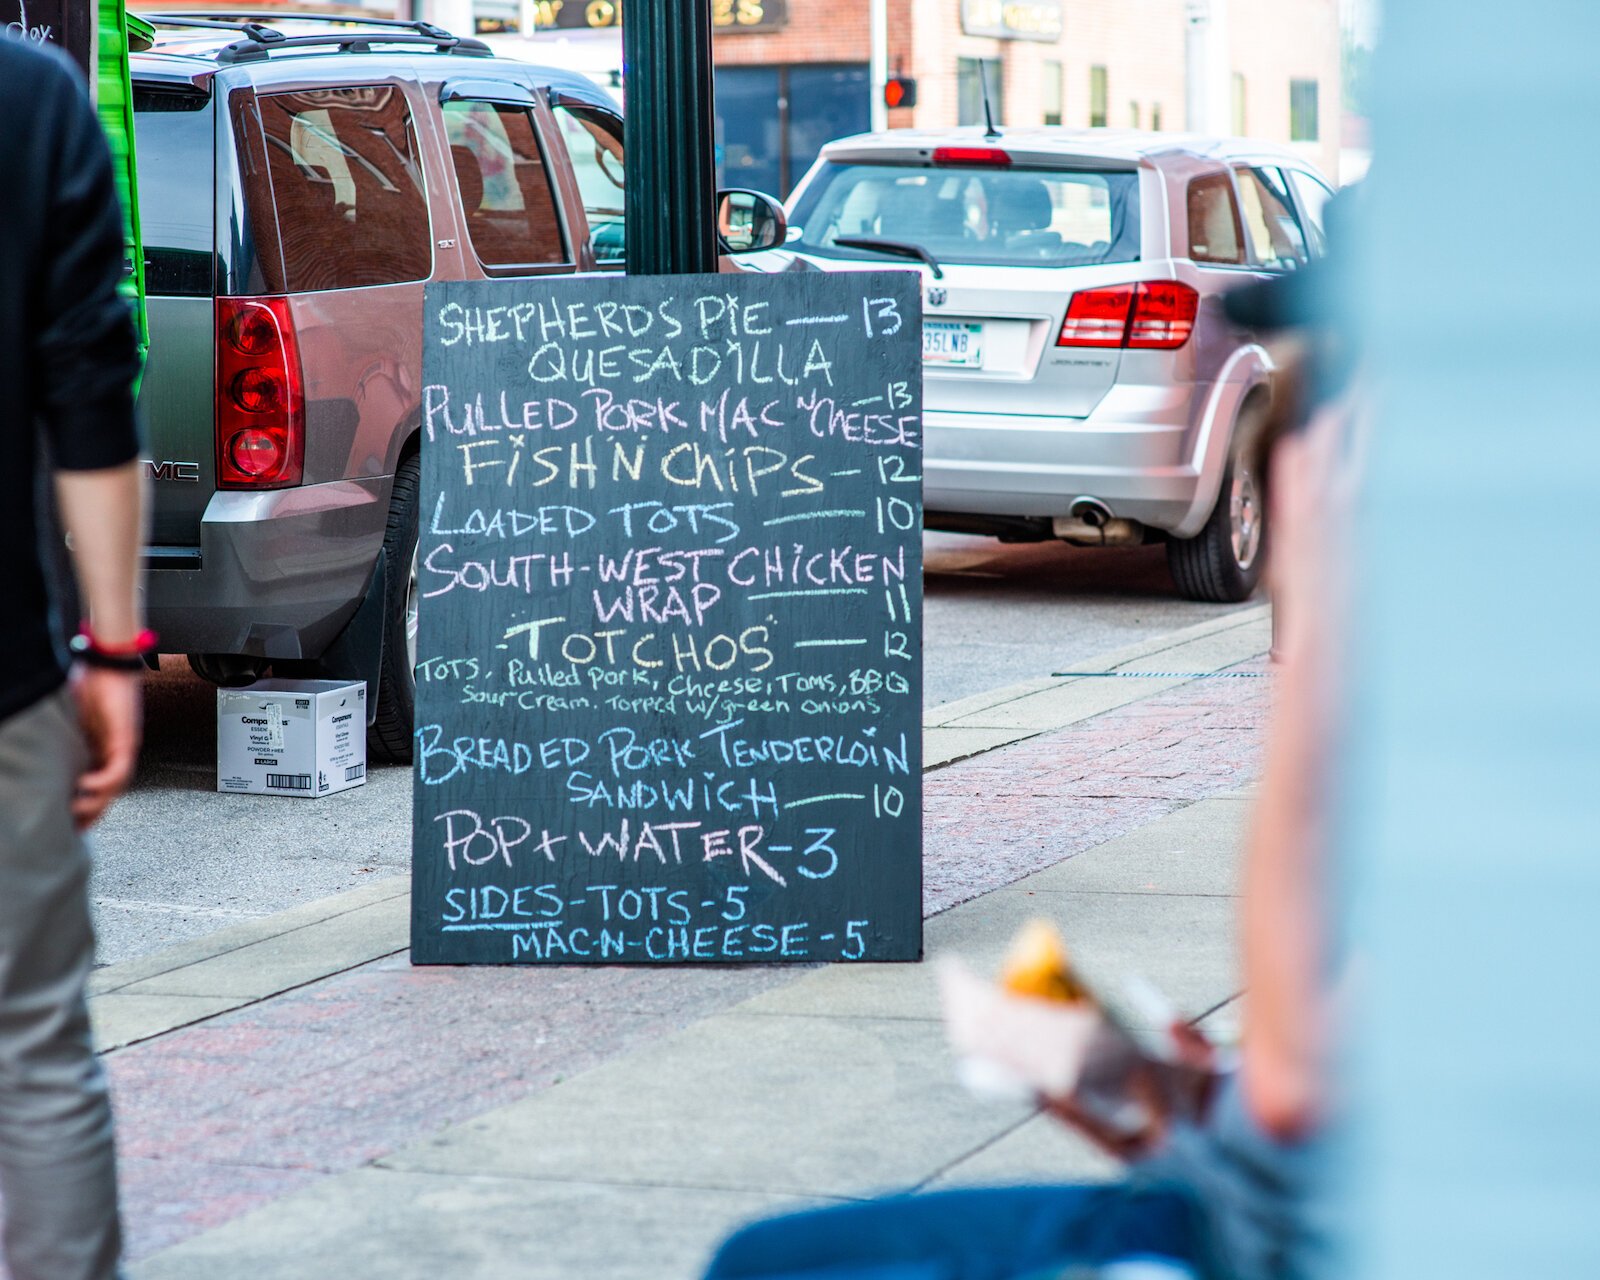 Day.
SHEPHERD'S PIE — 13
QUESADILLA
PULLED PORK MAC 'N' CHEESE — 13
FISH 'N' CHIPS — 12
LOADED TOTS — 10
SOUTH-WEST CHICKEN
WRAP 11
"TOTCHOS" — 12
TOTS, Pulled Pork, Cheese, Toms, BBQ
Sour Cream. Topped w/green onions
BREADED PORK TENDERLOIN
SANDWICH — 10
POP + WATER - 3
SIDES - TOTS - 5
MAC-N-CHEESE - 5
35LNB
JOURNEY
SLT
MC
POWDER FREE
X-LARGE